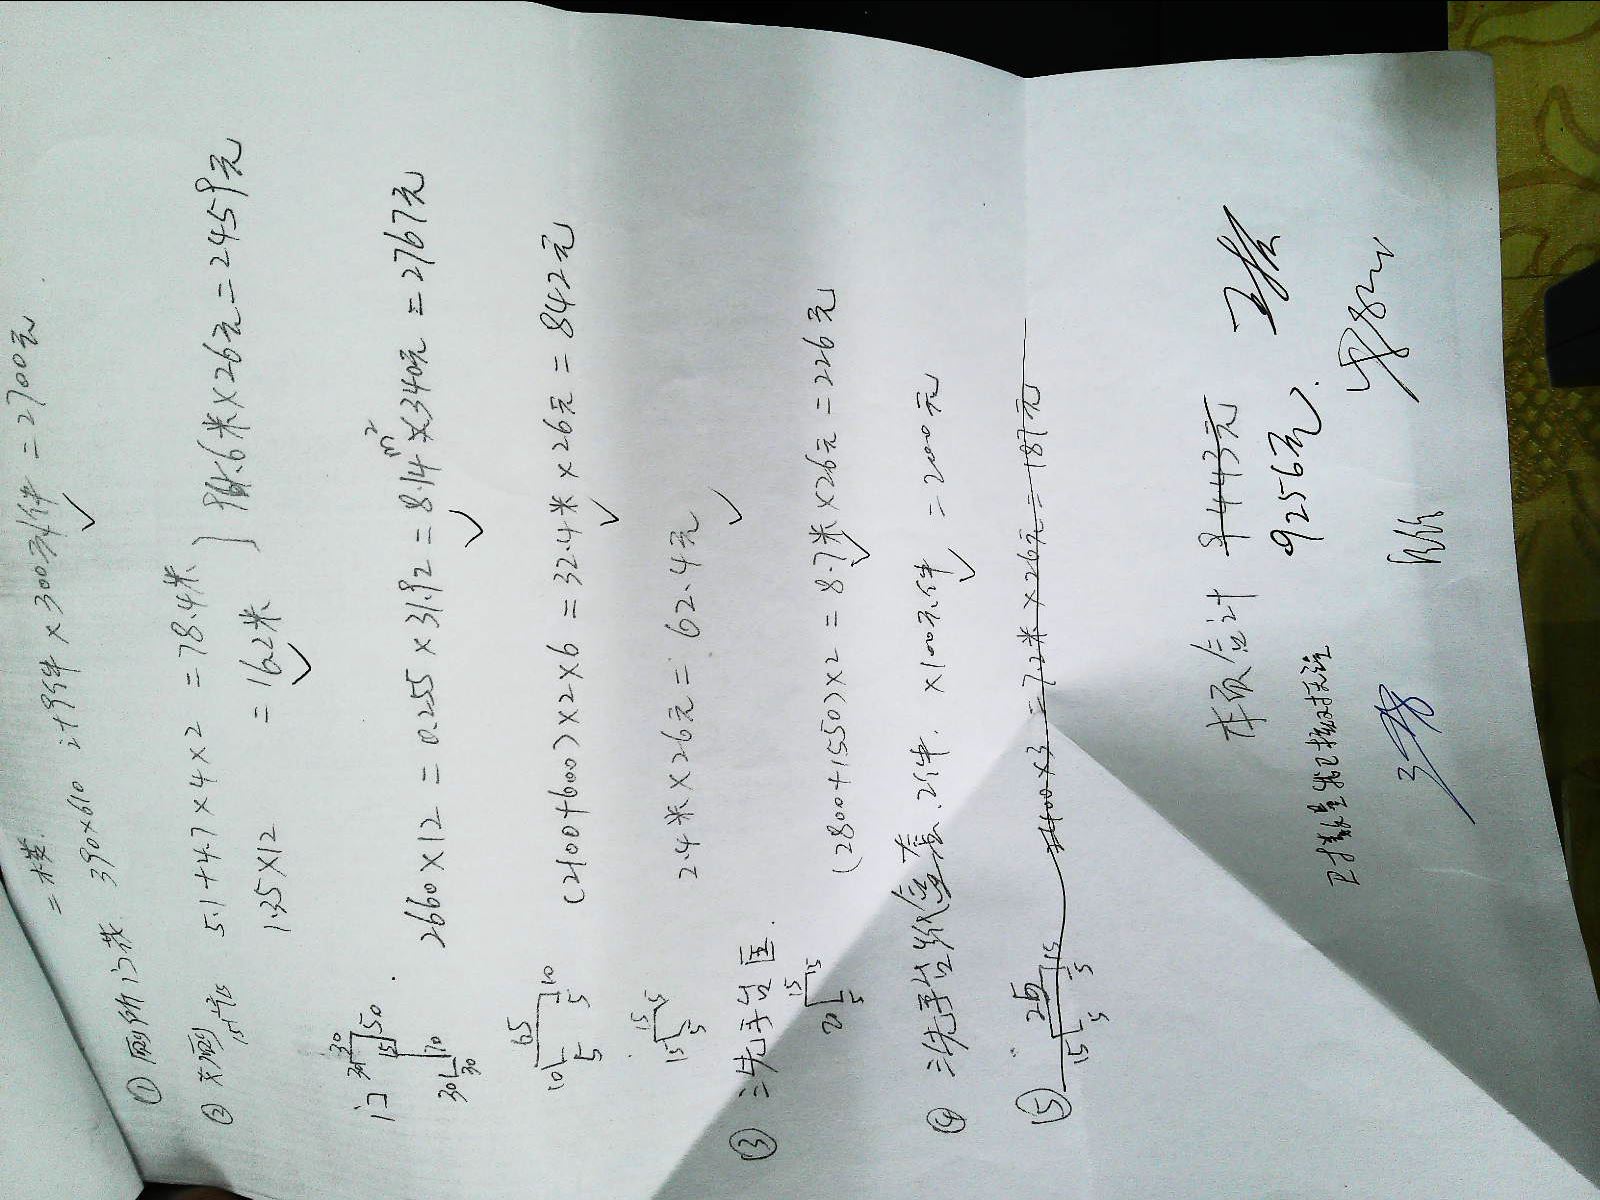 二楼.
① 厕所门花 390×610 计9件×300元/件=2700元
② 女厕 5.1+4.7×4×2=78.4米
1.35×12=16.2米 } 94.6米×26元=2459元
门
30 30 50 15 70 30 30
2660×12=0.255×31.92=8.14m²×340元=2767元
65 10 10 5 5
(2100+600)×2×6=32.4米×26元=842元
15 15 5 5
2.4米×26元=62.4元
③ 洗手台 匡.
15 15 20 5
(2800+1550)×2=8.7米×26元=226元
④ 洗手台 2件. ×100元/件=2000元
⑤ 25 15 15 5 5
2400×3=7.2米×26元=187元
本页合计 9443元
9256元.